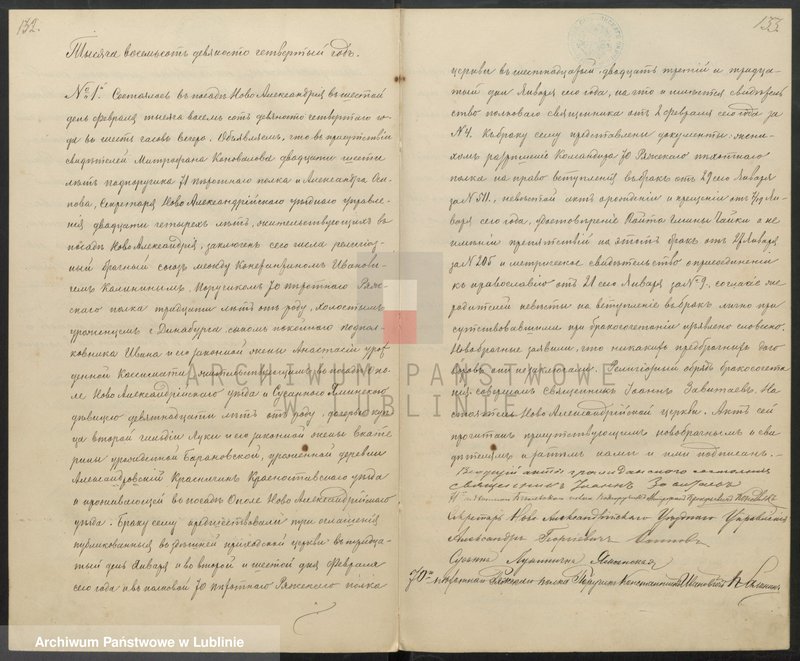 132.
Тысяча восемьсотъ девяносто четвертый годъ.
№ 1. Состоялось въ посадѣ Ново Александріи въ шестой
день февраля тысяча восемь сотъ девяносто четвертаго го-
да въ шесть часовъ вечера. Объявляемъ, что въ присутствіи
свидѣтелей Митрофана Коновалова двадцати шести
лѣтъ подпоручика 71 пѣхотнаго полка и Александра Оси-
пова, Секретаря Ново Александрійскаго уѣзднаго управле-
нія двадцати четырехъ лѣтъ, жительствующихъ въ
посадѣ Ново Александріи, заключенъ сего числа религіоз-
ный брачный союзъ между Константиномъ Иванови-
чемъ Калининымъ, Поручикомъ 70 пѣхотнаго Ряж-
скаго полка тридцати лѣтъ отъ роду, холостымъ
уроженцемъ г. Динабурга, сыномъ покойнаго подпол-
ковника Ивана и его законной жены Анастасіи урож-
денной жительствующимъ въ посадѣ
Ново Александрійскаго уѣзда и Сусанною Ялинскою
дѣвицею девятнадцати лѣтъ отъ роду, дочерью куп-
ца второй гильдіи Луки и его законной жены Екате-
рины урожденной Барановской, урожденной деревни
Александровскій Красничинъ Красноставскаго уѣзда
и проживающей въ посадѣ Ополе Ново Александрійскаго
уѣзда. Браку сему предшествовали три оглашенія
публикованныя въ здѣшней приходской церкви въ тридца-
тый день Января и во второй и шестой дня Февраля
сего года и въ полковой 70 пѣхотнаго Ряжскаго полка
133
церкви въ шестнадцатый, двадцать третій и тридца-
тый дни Января сего года, на что и имѣется свидѣтель-
ство полковаго священника отъ 2 февраля сего года за
№ 4. Къ браку сему представлены документы: жени-
хомъ разрѣшеніе Командира 70 Ряжскаго пѣхотнаго
полка на право вступленія въ бракъ отъ 29 сего Января
за № 511, невѣстой актъ о рожденіи и крещеніи отъ Ян-
варя сего года, удостовѣреніе Войта гмины Чайки о не
имѣніи препятствій на этотъ бракъ отъ 27 Января
за № 205 и метрическое свидѣтельство о присоединеніи
къ православію отъ 21 сего Января за № 9, согласіе же
родителей невѣсты на вступленіе въ бракъ лично при-
сутствовавшими при бракосочетаніи изъявлено словесно.
Новобрачные заявили, что никакихъ предбрачныхъ дого-
воровъ они не заключали. Религіозный обрядъ бракосочета-
нія совершалъ Священникъ Іоаннъ Завитаевъ, На-
стоятель Ново Александрійской церкви. Актъ сей
прочитанъ присутствующимъ новобрачнымъ и сви-
дѣтелямъ и затѣмъ нами и ими подписанъ.
Ведущій акты гражданскаго состоянія
священникъ Іоаннъ
полка Подпоручикъ Митрофанъ Коноваловъ
Секретарь Ново Александрійскаго Уѣзднаго Управленія
Александръ Георгіевичъ Осиповъ
Сусанна Лукинична Ялинская
70го пѣхотнаго Ряжскаго полка Поручикъ Константинъ Ивановичъ Калининъ
ARCHIWUM PAŃSTWOWE
W LUBLINIE
Archiwum Państwowe w Lublinie